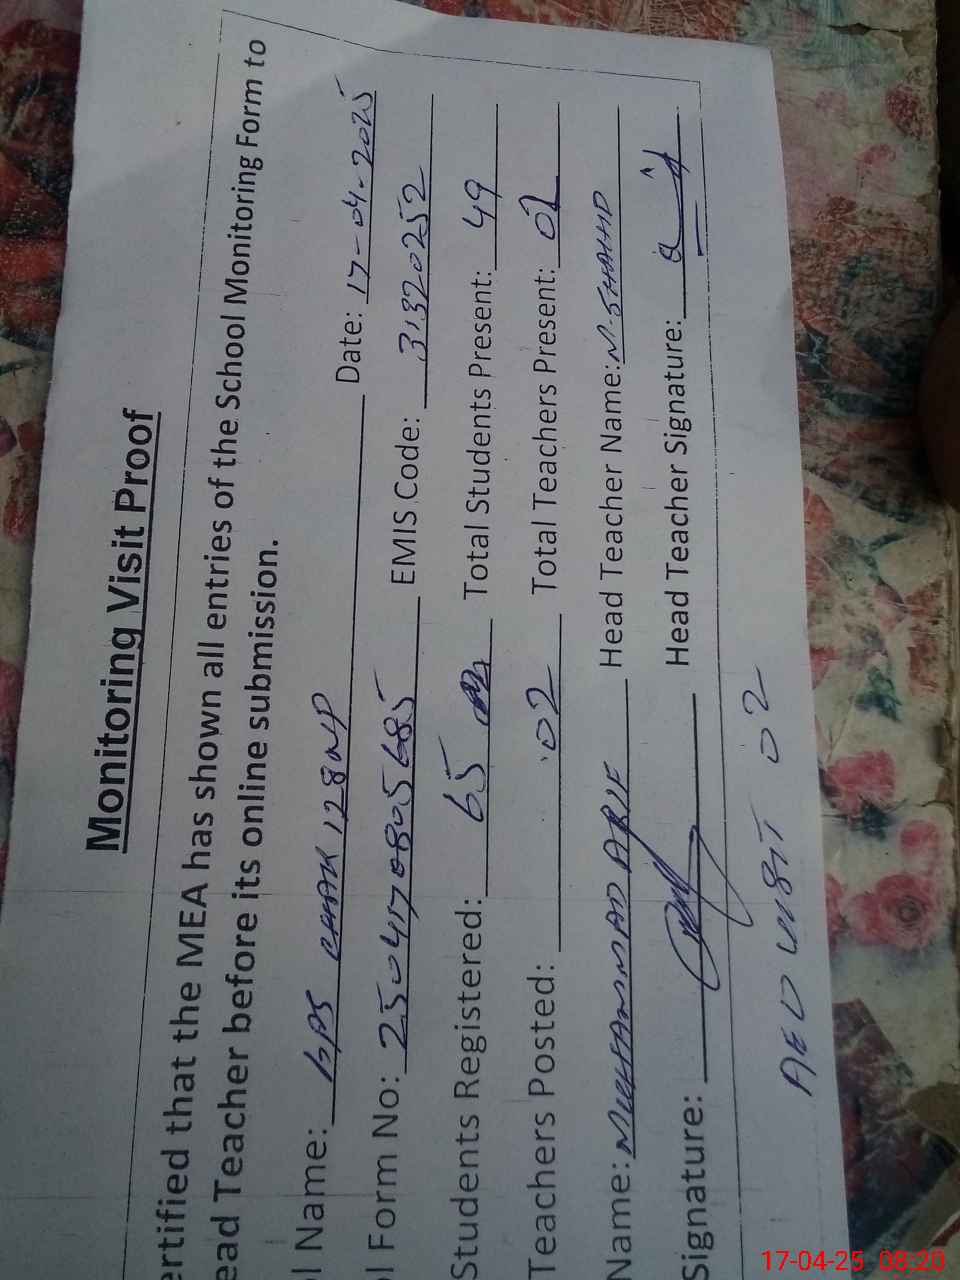 Monitoring Visit Proof
ertified that the MEA has shown all entries of the School Monitoring Form to
ead Teacher before its online submission.
l Name: GPS CHAK 128 NP Date: 17-04-2025
l Form No: 2504170805685 EMIS Code: 31320252
Students Registered: 65 Total Students Present: 49
Teachers Posted: 02 Total Teachers Present: 02
Name: MUHAMMAD ARIF Head Teacher Name: M-SHAHID
Signature: Head Teacher Signature:
AEO VISIT 02
17-04-25 08:20